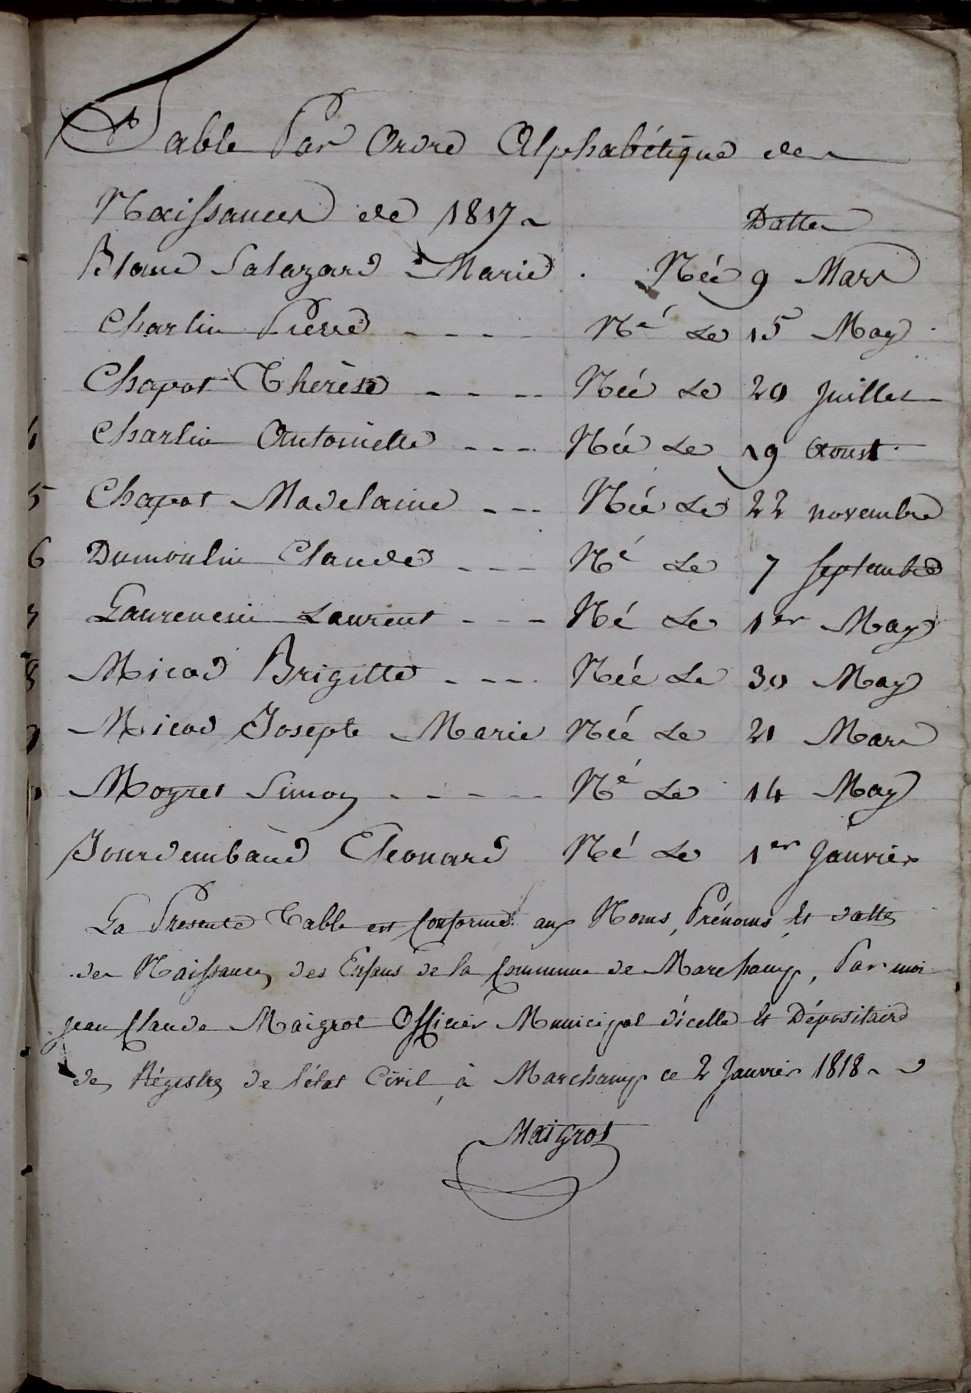 Table Par Ordre Alphabétique des
Naissances de 1817
Dattes
Blanc Salazard Marie . Née 9 Mars
Charlin Pierre - - - - Né Le 15 May
Chapot Thérèse - - - - Née Le 20 Juillet
4 Charlin Antoinette - - - Née Le 19 Aoust
5 Chapot Madelaine - - - Née Le 22 novembre
6 Dumoulin Claude - - - Né Le 7 Septembre
7 Laurencin Laurent - - - Né Le 1er May
8 Micod Brigitte - - - - Née Le 30 May
9 Micod Josepte Marie Née Le 21 Mars
Moyret Simon - - - - - Né Le 14 May
Jourdembaud Eléonard Né Le 1er Janvier
La Présente Table est Conforme aux Noms, Prénoms Et dattes
des Naissances des Enfans de la Commune de Marchamp, Par moi
Jean Claude Maigrot Officier Municipal d'icelle Et Dépositaire
des Régistres de l'état Civil, à Marchamp ce 2 Janvier 1818
Maigrot